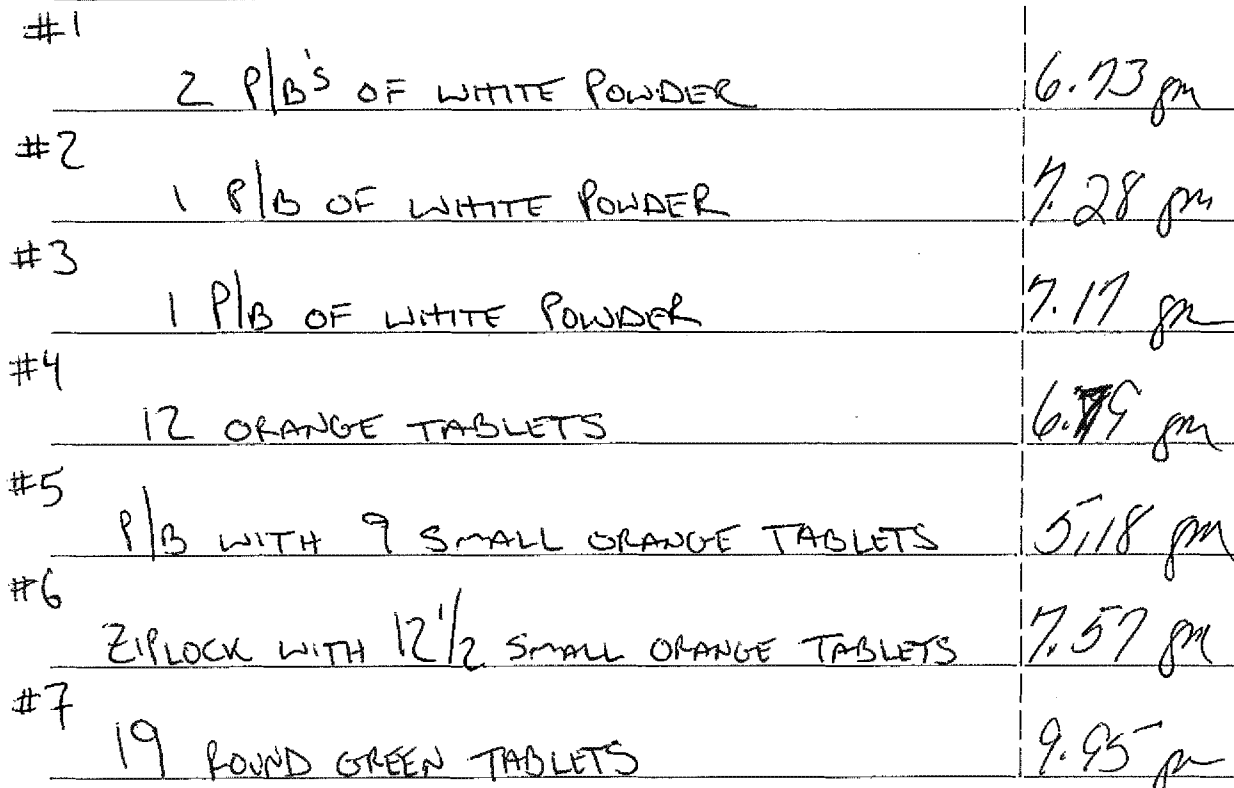 #1
2 P/B's OF WHITE POWDER 6.73 gm
#2
1 P/B OF WHITE POWDER 7.28 gm
#3
1 P/B OF WHITE POWDER 7.17 gm
#4
12 ORANGE TABLETS gm
#5
P/B WITH 9 SMALL ORANGE TABLETS 5.18 gm
#6
ZIPLOCK WITH 12 1/2 SMALL ORANGE TABLETS 7.57 gm
#7
19 ROUND GREEN TABLETS 9.95 gm